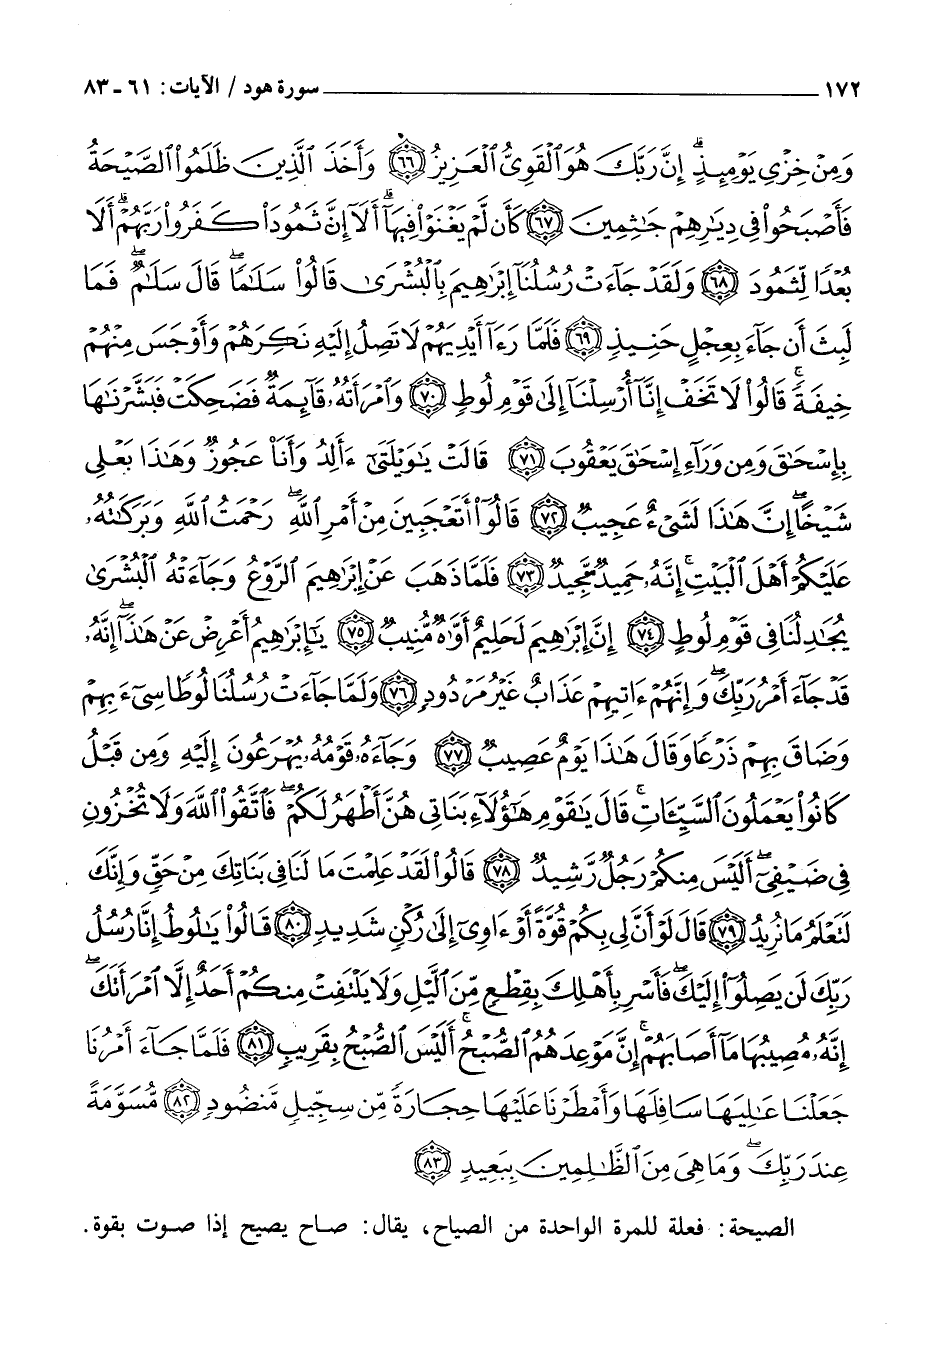 ١٧٢ ــــــــــــــــــــ سورة هود / الآيات : ٦١ ـ ٨٣
وَمِنْ خِزْىِ يَوْمِئِذٍۗ إِنَّ رَبَّكَ هُوَ ٱلْقَوِىُّ ٱلْعَزِيزُ ﴿٦٦﴾ وَأَخَذَ ٱلَّذِينَ ظَلَمُوا۟ ٱلصَّيْحَةُ
فَأَصْبَحُوا۟ فِى دِيَٰرِهِمْ جَٰثِمِينَ ﴿٦٧﴾ كَأَن لَّمْ يَغْنَوْا۟ فِيهَآۗ أَلَآ إِنَّ ثَمُودَا۟ كَفَرُوا۟ رَبَّهُمْۗ أَلَا
بُعْدًا لِّثَمُودَ ﴿٦٨﴾ وَلَقَدْ جَآءَتْ رُسُلُنَآ إِبْرَٰهِيمَ بِٱلْبُشْرَىٰ قَالُوا۟ سَلَٰمًاۖ قَالَ سَلَٰمٌۖ فَمَا
لَبِثَ أَن جَآءَ بِعِجْلٍ حَنِيذٍ ﴿٦٩﴾ فَلَمَّا رَءَآ أَيْدِيَهُمْ لَا تَصِلُ إِلَيْهِ نَكِرَهُمْ وَأَوْجَسَ مِنْهُمْ
خِيفَةًۚ قَالُوا۟ لَا تَخَفْ إِنَّآ أُرْسِلْنَآ إِلَىٰ قَوْمِ لُوطٍ ﴿٧٠﴾ وَٱمْرَأَتُهُۥ قَآئِمَةٌ فَضَحِكَتْ فَبَشَّرْنَٰهَا
بِإِسْحَٰقَ وَمِن وَرَآءِ إِسْحَٰقَ يَعْقُوبَ ﴿٧١﴾ قَالَتْ يَٰوَيْلَتَىٰٓ ءَأَلِدُ وَأَنَا۠ عَجُوزٌ وَهَٰذَا بَعْلِى
شَيْخًاۖ إِنَّ هَٰذَا لَشَىْءٌ عَجِيبٌ ﴿٧٢﴾ قَالُوٓا۟ أَتَعْجَبِينَ مِنْ أَمْرِ ٱللَّهِۖ رَحْمَتُ ٱللَّهِ وَبَرَكَٰتُهُۥ
عَلَيْكُمْ أَهْلَ ٱلْبَيْتِۚ إِنَّهُۥ حَمِيدٌ مَّجِيدٌ ﴿٧٣﴾ فَلَمَّا ذَهَبَ عَنْ إِبْرَٰهِيمَ ٱلرَّوْعُ وَجَآءَتْهُ ٱلْبُشْرَىٰ
يُجَٰدِلُنَا فِى قَوْمِ لُوطٍ ﴿٧٤﴾ إِنَّ إِبْرَٰهِيمَ لَحَلِيمٌ أَوَّٰهٌ مُّنِيبٌ ﴿٧٥﴾ يَٰٓإِبْرَٰهِيمُ أَعْرِضْ عَنْ هَٰذَآۖ إِنَّهُۥ
قَدْ جَآءَ أَمْرُ رَبِّكَۖ وَإِنَّهُمْ ءَاتِيهِمْ عَذَابٌ غَيْرُ مَرْدُودٍ ﴿٧٦﴾ وَلَمَّا جَآءَتْ رُسُلُنَا لُوطًا سِىٓءَ بِهِمْ
وَضَاقَ بِهِمْ ذَرْعًا وَقَالَ هَٰذَا يَوْمٌ عَصِيبٌ ﴿٧٧﴾ وَجَآءَهُۥ قَوْمُهُۥ يُهْرَعُونَ إِلَيْهِ وَمِن قَبْلُ
كَانُوا۟ يَعْمَلُونَ ٱلسَّيِّـَٔاتِۚ قَالَ يَٰقَوْمِ هَٰٓؤُلَآءِ بَنَاتِى هُنَّ أَطْهَرُ لَكُمْۖ فَٱتَّقُوا۟ ٱللَّهَ وَلَا تُخْزُونِ
فِى ضَيْفِىٓۖ أَلَيْسَ مِنكُمْ رَجُلٌ رَّشِيدٌ ﴿٧٨﴾ قَالُوا۟ لَقَدْ عَلِمْتَ مَا لَنَا فِى بَنَاتِكَ مِنْ حَقٍّ وَإِنَّكَ
لَتَعْلَمُ مَا نُرِيدُ ﴿٧٩﴾ قَالَ لَوْ أَنَّ لِى بِكُمْ قُوَّةً أَوْ ءَاوِىٓ إِلَىٰ رُكْنٍ شَدِيدٍ ﴿٨٠﴾ قَالُوا۟ يَٰلُوطُ إِنَّا رُسُلُ
رَبِّكَ لَن يَصِلُوٓا۟ إِلَيْكَۖ فَأَسْرِ بِأَهْلِكَ بِقِطْعٍ مِّنَ ٱلَّيْلِ وَلَا يَلْتَفِتْ مِنكُمْ أَحَدٌ إِلَّا ٱمْرَأَتَكَۖ
إِنَّهُۥ مُصِيبُهَا مَآ أَصَابَهُمْۚ إِنَّ مَوْعِدَهُمُ ٱلصُّبْحُۚ أَلَيْسَ ٱلصُّبْحُ بِقَرِيبٍ ﴿٨١﴾ فَلَمَّا جَآءَ أَمْرُنَا
جَعَلْنَا عَٰلِيَهَا سَافِلَهَا وَأَمْطَرْنَا عَلَيْهَا حِجَارَةً مِّن سِجِّيلٍ مَّنضُودٍ ﴿٨٢﴾ مُّسَوَّمَةً
عِندَ رَبِّكَۖ وَمَا هِىَ مِنَ ٱلظَّٰلِمِينَ بِبَعِيدٍ ﴿٨٣﴾
الصيحة : فعلة للمرة الواحدة من الصياح، يقال : صاح يصيح إذا صوت بقوة .